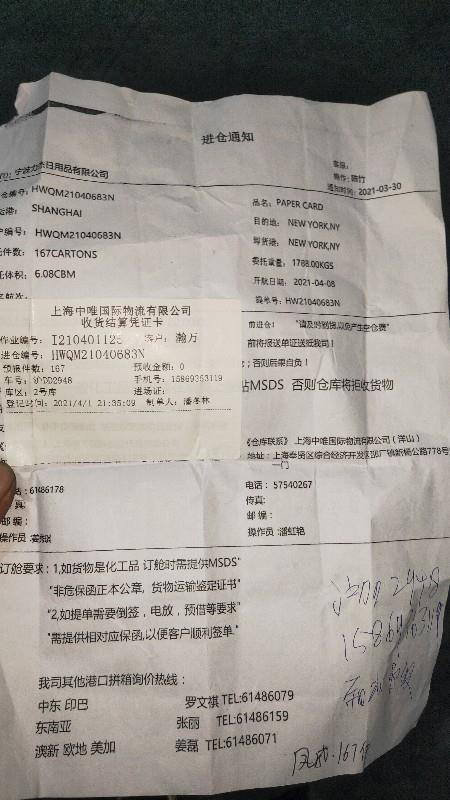 进仓通知
客服:
操作: 陈竹
通知时间: 2021-03-30
日用品有限公司
仓编号: HWQM21040683N
品名: PAPER CARD
SHANGHAI
目的地: NEW YORK,NY
编号: HWQM21040683N
卸货港: NEW YORK,NY
件数: 167CARTONS
委托重量: 1788.00KGS
托体积: 6.08CBM
开航日期: 2021-04-08
提单号: HW21040683N
上海中唯国际物流有限公司
收货结算凭证卡
作业编号: I210401125 客户: 瀚万
进仓编号: HWQM21040683N
预报件数: 167 预收金额: 0
车号: 沪DD2948 手机号: 15869363119
库区: 2号库 进场证:
登记时间: 2021/4/1 21:35:09 制单人: 潘冬林
前进仓! "请及时到货,以免产生空仓费"
前将报送单证送抵我司!
; 否则后果自负!
MSDS 否则仓库将拒收货物
《仓库联系》 上海中唯国际物流有限公司 (洋山)
地址: 上海奉贤区综合经济开发区
一门
话: 61486178
电话: 57540267
传真:
传真:
邮编:
邮编:
操作员
操作员: 潘虹艳
订舱要求: 1,如货物是化工品 订舱时需提供MSDS"
"非危保函正本公章, 货物运输鉴定证书"
"2,如提单需要倒签, 电放, 预借等要求"
"需提供相对应保函,以便客户顺利签单."
我司其他港口拼箱询价热线:
中东 印巴 罗文祺 TEL:61486079
东南亚 张丽 TEL:61486159
澳新 欧地 美加 姜磊 TEL:61486071